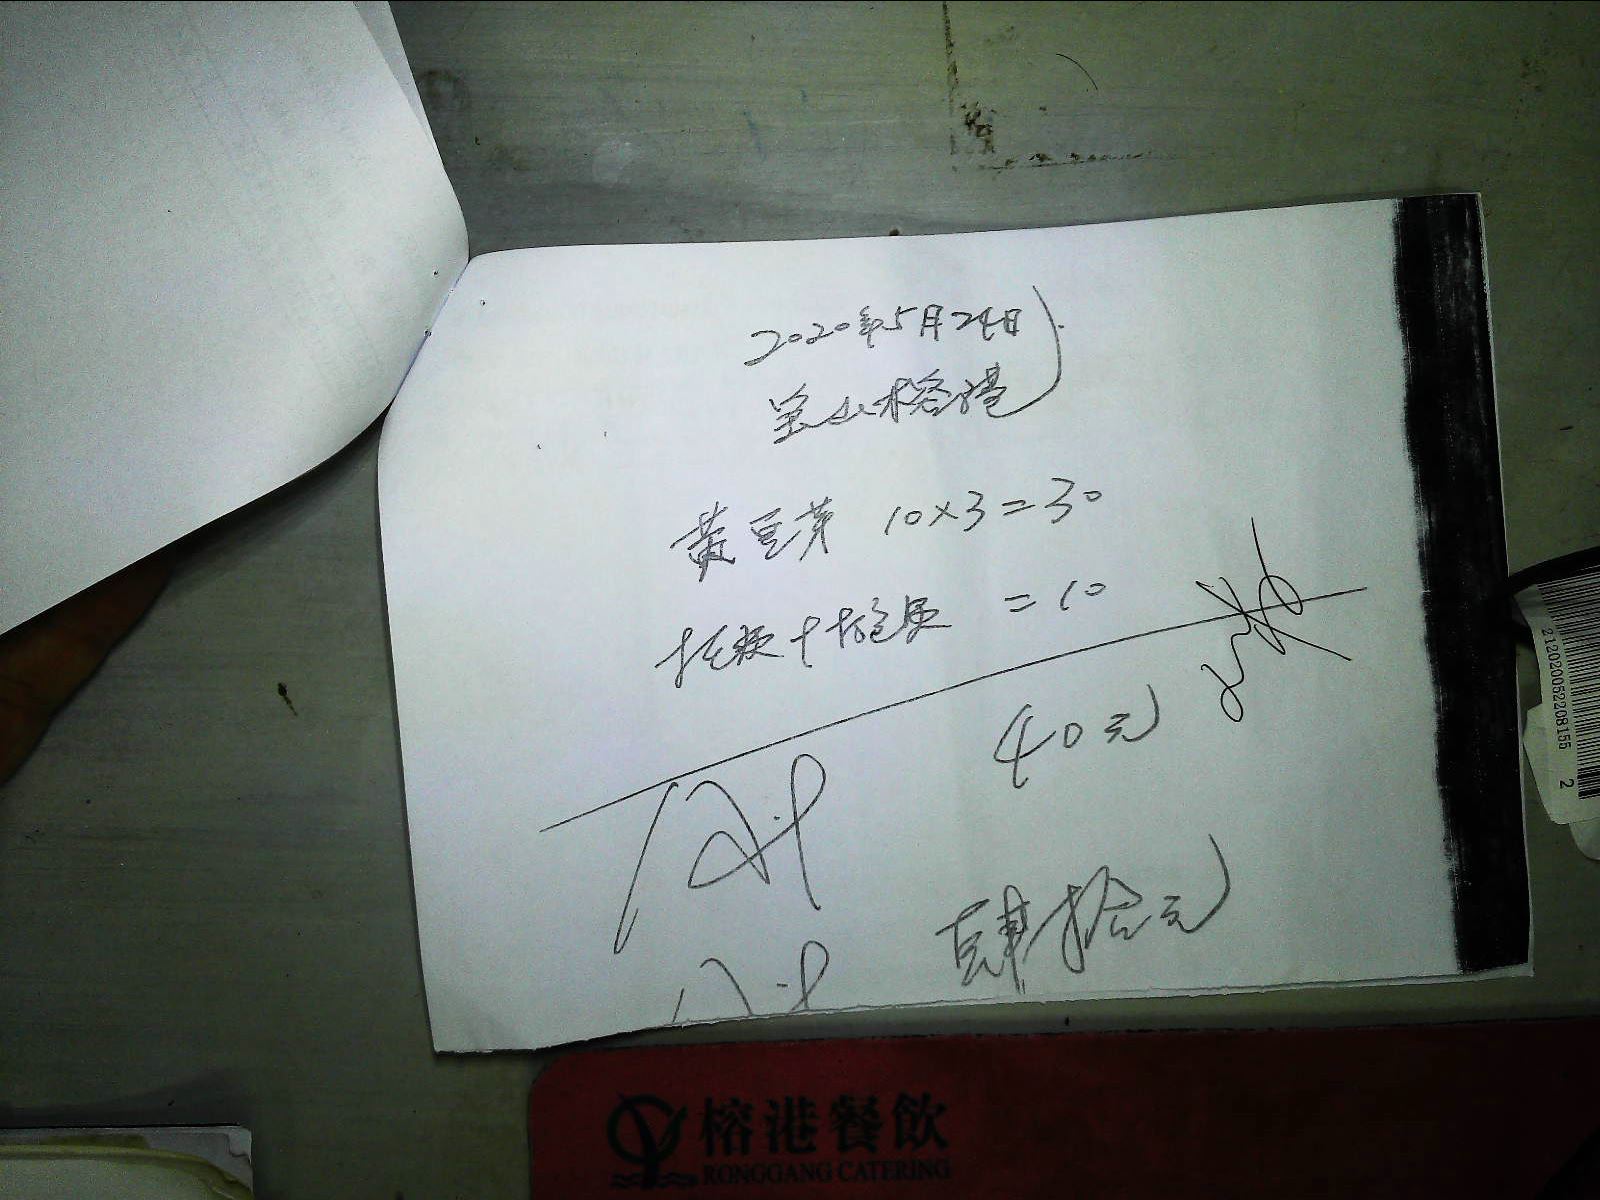 2020年5月24日
宝山榕港
黄豆芽 10×3=30
=10
40元
肆拾元
2120200522081552
榕港餐飲
RONGGANG CATERING